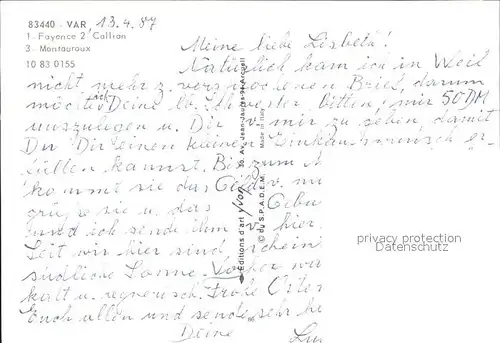 83440 - VAR 13.4.87
1 - Fayence 2 Callian
3 - Montauroux
10 83 0155
Meine liebe Lisbeth!
Natürlich kam ich in Weil
nicht mehr z. versprochenen Brief, darum
möchte ich Deine lb. Schwester bitten, mir 50 DM
auszulegen u. Dir v. mir zu geben, damit
Du Dir einen kleinen Einkaufswunsch er-
füllen kannst. Bis zum
kommt sie das Geld v. mi
grüße sie u. das Gebu
und ich sende ihm v. hier
Seit wir hier sind schein
südliche Sonne. Vorher wa
kalt u. regnerisch. Frohe Oster
Euch allen und sende sehr he
Deine
© Editions d'art yvon
30, Av. Jean-Jaurès-94 Arcueil
Made in Italy
© by S.P.A.D.E.M.
privacy protection
Datenschutz